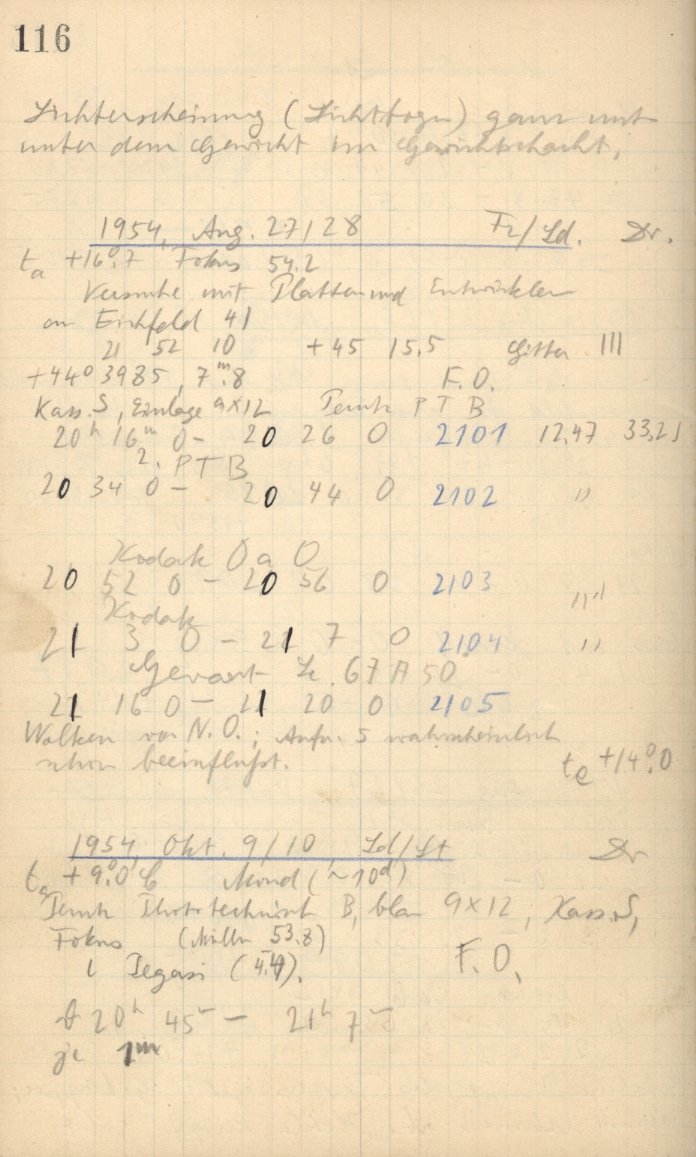 116
Lichterscheinung (Lichtbogen) ganz unt
unter dem Gewicht im Gewichtschacht,
1954, Aug. 27/28 Fr/Ld. Dr.
ta +16°.7 Fokus 54.2
Versuche mit Platten und Entwickler
an Eichfeld 41
21 52 10 +45 15.5 Gitter III
+44° 3985, 7m.8 F.O.
Kass. S, Einlage 9x12 Perutz P T B
20h 16m 0 - 20 26 0 2101 12.47
2. P T B
20 34 0 - 20 44 0 2102 "
Kodak O a O
20 52 0 - 20 56 0 2103
Kodak
21 3 0 - 21 7 0 2104 "
Gevaert 67 A 50
21 16 0 - 21 20 0 2105
Wolken von N.O.; Aufn. 5 wahrscheinlich
schon beeinflußt. te +14°.0
1954, Okt. 9/10 Ld/Lt Dr
ta +9°.0 C Mond (~10d)
Perutz Phototechnisch B, blau 9x12, Kass. S,
Fokus 53.8)
ι Pegasi (4.4). F.O.
20h 45m - 21h 7m
je 1m